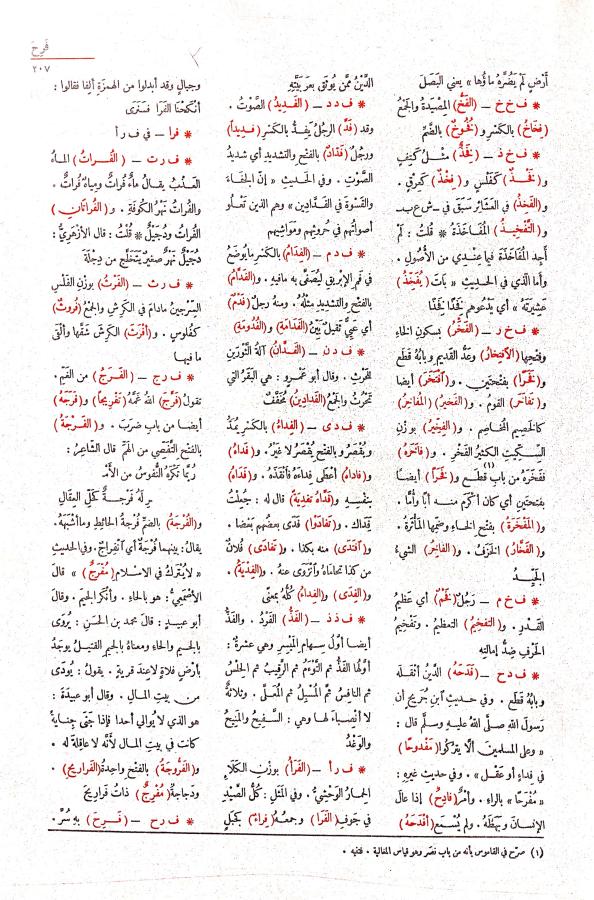 فَرِحَ
٢٠٧
أَرْضٍ لَمْ يَضُرَّهُ مَاؤُها» يعني البَصَلَ
* ف خ خ – (الفَخُّ) المِصْيَدَةُ والجَمْعُ
(فِخَاخٌ) بالكَسْرِ و(فُخُوخٌ) بالضَّمِّ
* ف خ ذ – (فَخِذٌ) مثلُ كَتِفٍ
و(فَخْذٌ) كفَلْسٍ و(فِخْذٌ) كَعِرْقٍ .
و(الفَخِذُ) في العَشَائِرِ سَبَقَ في – ش ع ب –
و(التَّفْخِيذُ) المُفَاخَذَةُ * قُلْتُ : لَمْ
أَجِدِ المُفَاخَذَةَ فيما عِنْدِي من الأُصُولِ .
وأمّا الذي في الحديثِ «باتَ (يُفَخِّذُ)
عَشِيرَتَهُ» أي يَدْعُوهم فَخِذًا فَخِذًا
* ف خ ر – (الفَخْرُ) بسكون الخاءِ
وفتحِها (الاَفْتِخَارُ) وعَدُّ القديمِ وبابُهُ قَطَع
و(فَخَرًا) بفتحتين . و(اَفْتَخَرَ) أيضا
و(تَفَاخَرَ) القومُ . و(الفَخِيرُ) (المُفَاخِرُ)
كالخَصِيمِ المُخَاصِمِ . و(الفِخِّيرُ) بوزنِ
السِّكِّيتِ الكثيرُ الفَخْرِ . و(فَاخَرَهُ)
ففَخَرَهُ من باب قَطَعَ (١) و(فَخَرًا) أيضًا
بفتحتين أي كان أكرَمَ منه أَبًا وأُمًّا .
و(المَفْخَرَةُ) بفتح الخاءِ وضَمِّها المَأْثُرَةُ .
و(الفَخَّارُ) الخَزَفُ . و(الفاخِرُ) الشيءُ
الجَيِّدُ
* ف خ م – رَجُلٌ (فَخْمٌ) أي عَظِيمُ
القَدْرِ . و(التفخيمُ) التعظيمُ . وتَفْخِيمُ
الحَرْفِ ضِدُّ إمالتِهِ
* ف د ح – (فَدَحَهُ) الدَّيْنُ أَثْقَلَهُ
وبابُهُ قَطَع . وفي حديثِ ابن جُرَيجٍ أن
رسولَ اللهِ صلَّى اللهُ عليهِ وسلَّم قال :
«وعلى المسلمينَ ألّا يَتْرُكُوا (مَفْدُوحًا)
في فِدَاءٍ أو عَقْلٍ» . وفي حديثِ غيرِهِ :
«مُفْرَحًا» بالراءِ . وأَمْرٌ (فادِحٌ) إذا عالَ
الإنسانَ وبَهَظَهُ . ولم يُسْمَع (أَفْدَحَهُ)
الدَّيْنُ مِمَّن يُوثَقُ بعَرَبِيَّتِهِ
* ف د د – (الفَدِيدُ) الصَّوْتُ .
وقد (فَدَّ) الرجُلُ يَفِدُّ بالكَسْرِ (فَدِيدًا)
ورجُلٌ (فَدَّادٌ) بالفتح والتشديد أي شديدُ
الصَّوْتِ . وفي الحديثِ «إنَّ الجَفَاءَ
والقَسْوَةَ في الفَدَّادِين» وهم الذين تَعْلُو
أصواتُهم في حُرُوثِهِم ومَوَاشِيهِم
* ف د م – (الفِدَامُ) بالكسرِ ما يُوضَعُ
في فَمِ الإبْرِيقِ لِيُصَفَّى به ما فيه . و(الفَدَّامُ)
بالفتح والتشديد مِثْلُهُ . ومنه رجلٌ (فَدْمٌ)
أي عَيِيٌّ ثَقِيلٌ بَيِّنُ (الفَدَامَةِ) و(الفُدُومَةِ)
* ف د ن – (الفَدَّانُ) آلَةُ الثَّوْرَيْنِ
لِلْحَرْثِ . وقال أبو عَمْرٍو : هي البَقَرُ التي
تَحْرُثُ والجَمْعُ (الفَدَادِينُ) مُخَفَّفٌ
* ف د ى – (الفِدَاءُ) بالكَسْرِ يُمَدُّ
ويُقْصَرُ وبالفتحِ يُقْصَرُ لا غيرُ . و(فَدَاهُ)
و(فاداهُ) أَعْطَى فِداءَهُ فأنْقَذَهُ . و(فَدَاهُ)
بنَفْسِهِ و(فَدَّاهُ تَفْدِيَةً) قال له : جُعِلْتُ
فِدَاكَ . و(تَفَادَوْا) فَدَى بعضُهم بعضا .
و(اَفْتَدَى) منه بكذا . و(تَفَادَى) فُلانٌ
من كذا تَحَامَاهُ واَنْزَوَى عنه . و(الفِدْيَةُ)
و(الفِدَى) و(الفِداءُ) كُلُّه بمعنًى
* ف ذ ذ – (الفَذُّ) الفَرْدُ . والفَذُّ
أيضا أوَّلُ سِهامِ المَيْسِرِ وهي عشرةٌ :
أوَّلُها الفَذُّ ثم التَّوْءَمُ ثم الرَّقِيبُ ثم الحِلْسُ
ثم النافِسُ ثم المُسْبِلُ ثم المُعَلَّى . وثلاثةٌ
لا أَنْصِبَاءَ لها وهي : السَّفِيحُ والمَنِيحُ
والوَغْدُ
* ف ر أ – (الفَرَأُ) بوزْنِ الكَلَإِ
الحِمارُ الوَحْشِيُّ . وفي المَثَلِ : كُلُّ الصَّيْدِ
في جَوْفِ (الفَرَا) وجمعُه (فِراءٌ) بَكَجَبَلٍ
وجِبالٍ وقد أبدلوا من الهمزةِ ألِفا فقالوا :
أَنْكَحْنَا الفَرَا فَسَتَرَى
* فرا – في ف ر أ
* ف ر ت – (الفُراتُ) الماءُ
العَذْبُ يقالُ ماءٌ فُراتٌ ومِياهٌ فُراتٌ .
والفُراتُ نَهْرُ الكُوفَةِ . و(الفُراتَانِ)
الفُراتُ ودُجَيْلٌ * قُلْتُ : قال الأزهَرِيُّ :
دُجَيْلٌ نهرٌ صغيرٌ يَتَخَلَّجُ من دِجْلَةَ
* ف ر ث – (الفَرْثُ) بوزنِ الفَلْسِ
السِّرْجِينُ مادامَ في الكَرِشِ والجَمْعُ (فُروثٌ)
كفُلُوسٍ . و(أَفْرَثَ) الكَرِشَ شَقَّها وألقَى
ما فيها
* ف ر ج – (الفَرَجُ) من الغَمِّ .
تقولُ (فَرَّجَ) اللهُ غَمَّهُ (تَفْرِيجًا) و(فَرَجَهُ)
أيضا من باب ضَرَبَ . و(الفَرْجَةُ)
بالفتح التَّفَصِّي من الهَمِّ قال الشاعِرُ :
رُبَّمَا تَكْرَهُ النُّفُوسُ من الأَمْـ
ـرِ لَهُ فَرْجَةٌ كَحَلِّ العِقَالِ
و(الفُرْجَةُ) بالضمِّ فُرْجَةُ الحائِطِ وما أشبَهَهُ .
يقالُ : بينهما فُرْجَةٌ أي اَنفِراجٌ . وفي الحديثِ
«لا يُتْرَكُ في الاسلامِ (مُفْرَجٌ)» قال
الأصْمَعِيُّ : هو بالحاءِ . وأَنْكَرَ الجِيمَ . وقال
أبو عبيدٍ : قال محمد بن الحَسَنِ : يُرْوَى
بالجيم والحاءِ ومعناهُ بالجيم القَتِيلُ يوجَدُ
بأرضِ فَلاةٍ لا عِندَ قريةٍ . يقولُ : يُودَى
من بيتِ المالِ . وقال أبو عبيدة :
هو الذي لا يُوالي أحدا فإذا جَنَى جِنايةً
كانت في بيتِ المالِ لأنَّه لا عاقِلةَ له .
و(الفَرُّوجَةُ) بالفتحِ واحِدَةُ (الفَرَاريجِ) .
ودجاجةٌ (مُفْرِجٌ) ذاتُ فَراريجَ
* ف ر ح – (فَرِحَ) به سُرَّ .
(١) صرّح في القاموس بأنه من باب نصر وهو قياس المغالبة . فتنبه .